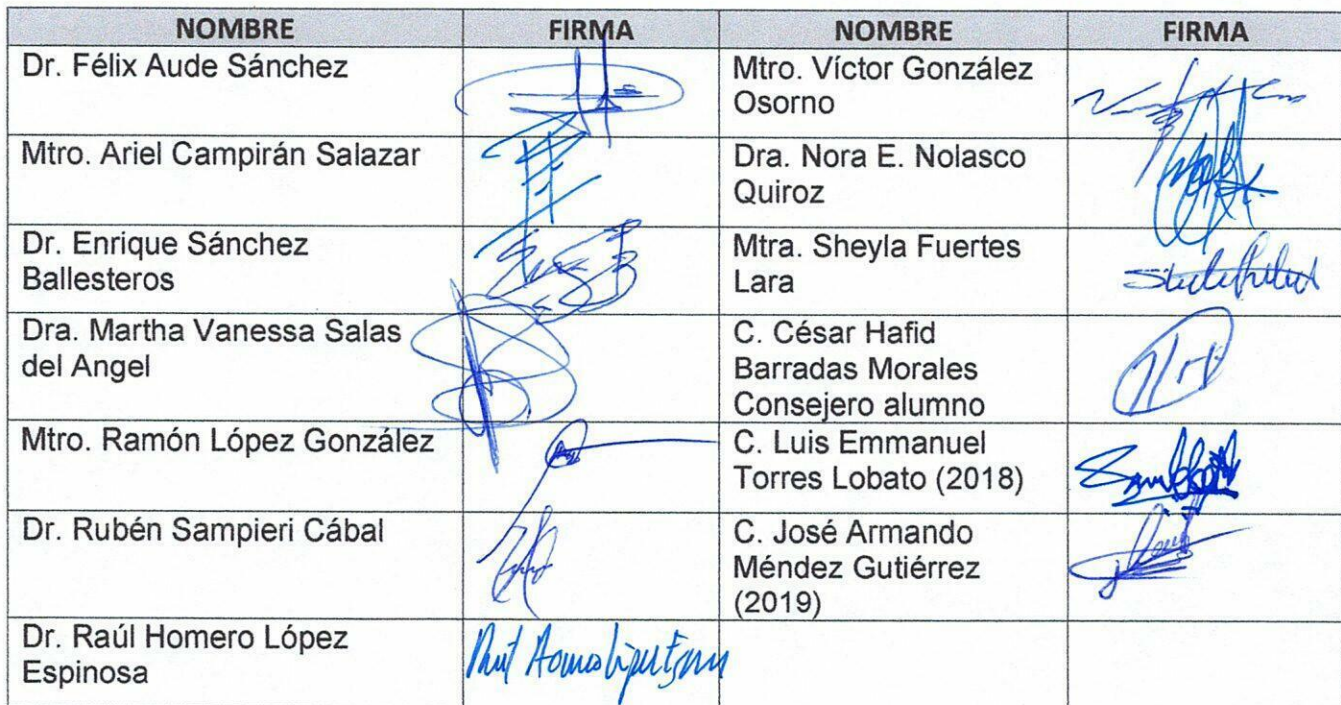 NOMBRE FIRMA NOMBRE FIRMA
Dr. Félix Aude Sánchez
Mtro. Víctor González
Osorno
Mtro. Ariel Campirán Salazar
Dra. Nora E. Nolasco
Quiroz
Dr. Enrique Sánchez
Ballesteros
Mtra. Sheyla Fuertes
Lara
Dra. Martha Vanessa Salas
del Angel
C. César Hafid
Barradas Morales
Consejero alumno
Mtro. Ramón López González
C. Luis Emmanuel
Torres Lobato (2018)
Dr. Rubén Sampieri Cábal
C. José Armando
Méndez Gutiérrez
(2019)
Dr. Raúl Homero López
Espinosa